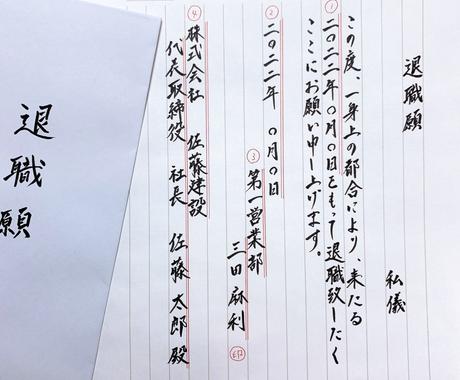 退職願
私儀
この度、一身上の都合により、来たる
①
二〇二二年〇月〇日をもって退職致したく
ここにお願い申し上げます。
②
二〇二二年 〇月〇日
③
第一営業部
三田 麻利
印
④
株式会社 佐藤建設
代表取締役 社長 佐藤 太郎 殿
退職願